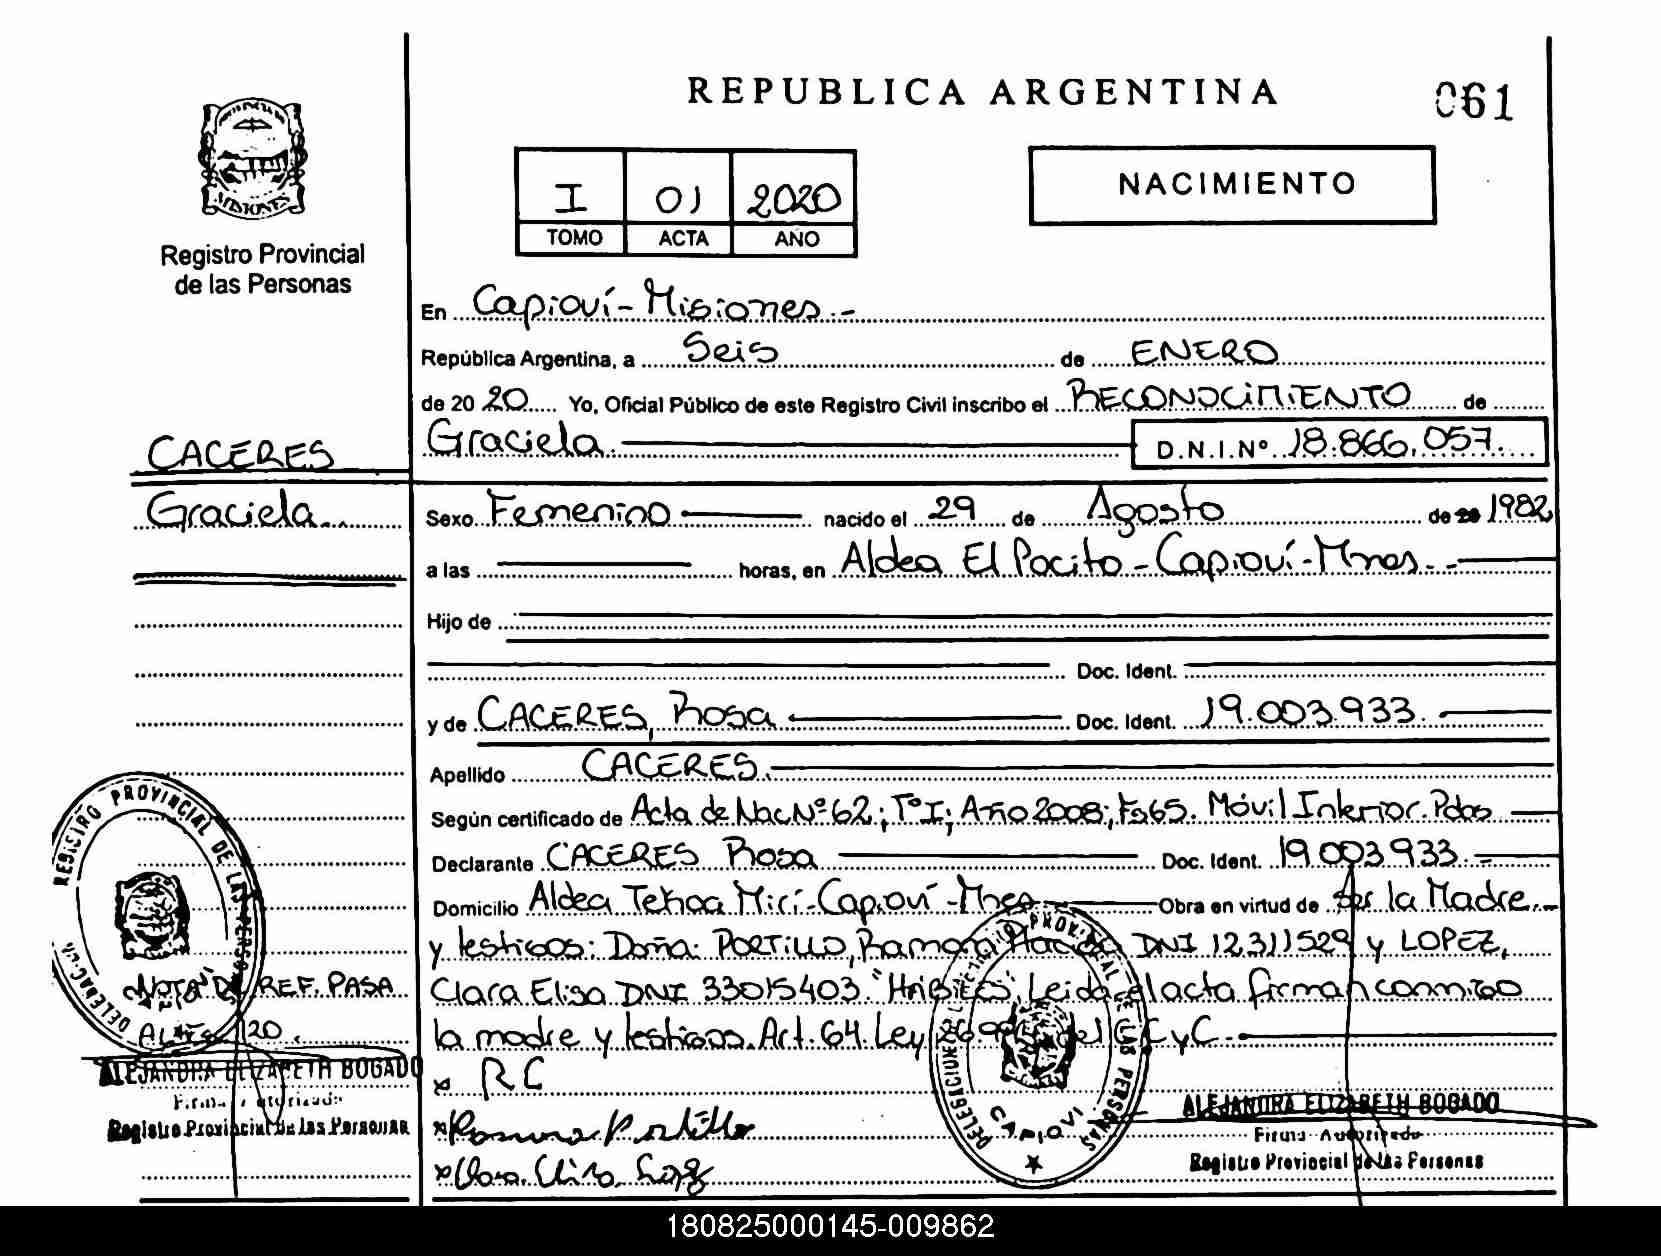 REPUBLICA ARGENTINA
061
MISIONES
Registro Provincial
de las Personas
I 01 2020
TOMO ACTA AÑO
NACIMIENTO
En Capioví - Misiones.-
República Argentina, a Seis de ENERO
de 20 20 Yo, Oficial Público de este Registro Civil inscribo el RECONOCIMIENTO de
Graciela. D.N.I.Nº 18.866.057.
CACERES
Graciela
Sexo Femenino nacido el 29 de Agosto de 20 1982
a las horas, en Aldea El Pocito - Capioví - Mnes.-
Hijo de
Doc. Ident.
y de CACERES, Rosa Doc. Ident. 19.003.933.
Apellido CACERES.
Según certificado de Acta de Nac Nº 62; Tº I; Año 2008; Fs 65. Móvil Interior. Pdas
Declarante CACERES Rosa Doc. Ident. 19.003.933.-
Domicilio Aldea Mirí - Capioví - Mnes Obra en virtud de Ser la Madre.-
y testigos: Doña: PORTILLO, Ramona DNI 12.311529 y LOPEZ,
Clara Elisa DNI 33015403. Leida el acta firman conmigo
la madre y testigos. Art. 64. Ley del C C y C.-
NOTA DE REF. PASA
AL /20.
x RC
x Ramona Portillo
x Clara Elisa Lopez
ALEJANDRA ELIZABETH BOGADO
Firma Autorizada
Registro Provincial de las Personas
ALEJANDRA ELIZABETH BOGADO
Firma Autorizada
Registro Provincial de las Personas
REGISTRO PROVINCIAL DE LAS PERSONAS
DELEGACION
PROVINCIAL DE LAS PERSONAS
DELEGACION
CAPIOVI
180825000145-009862